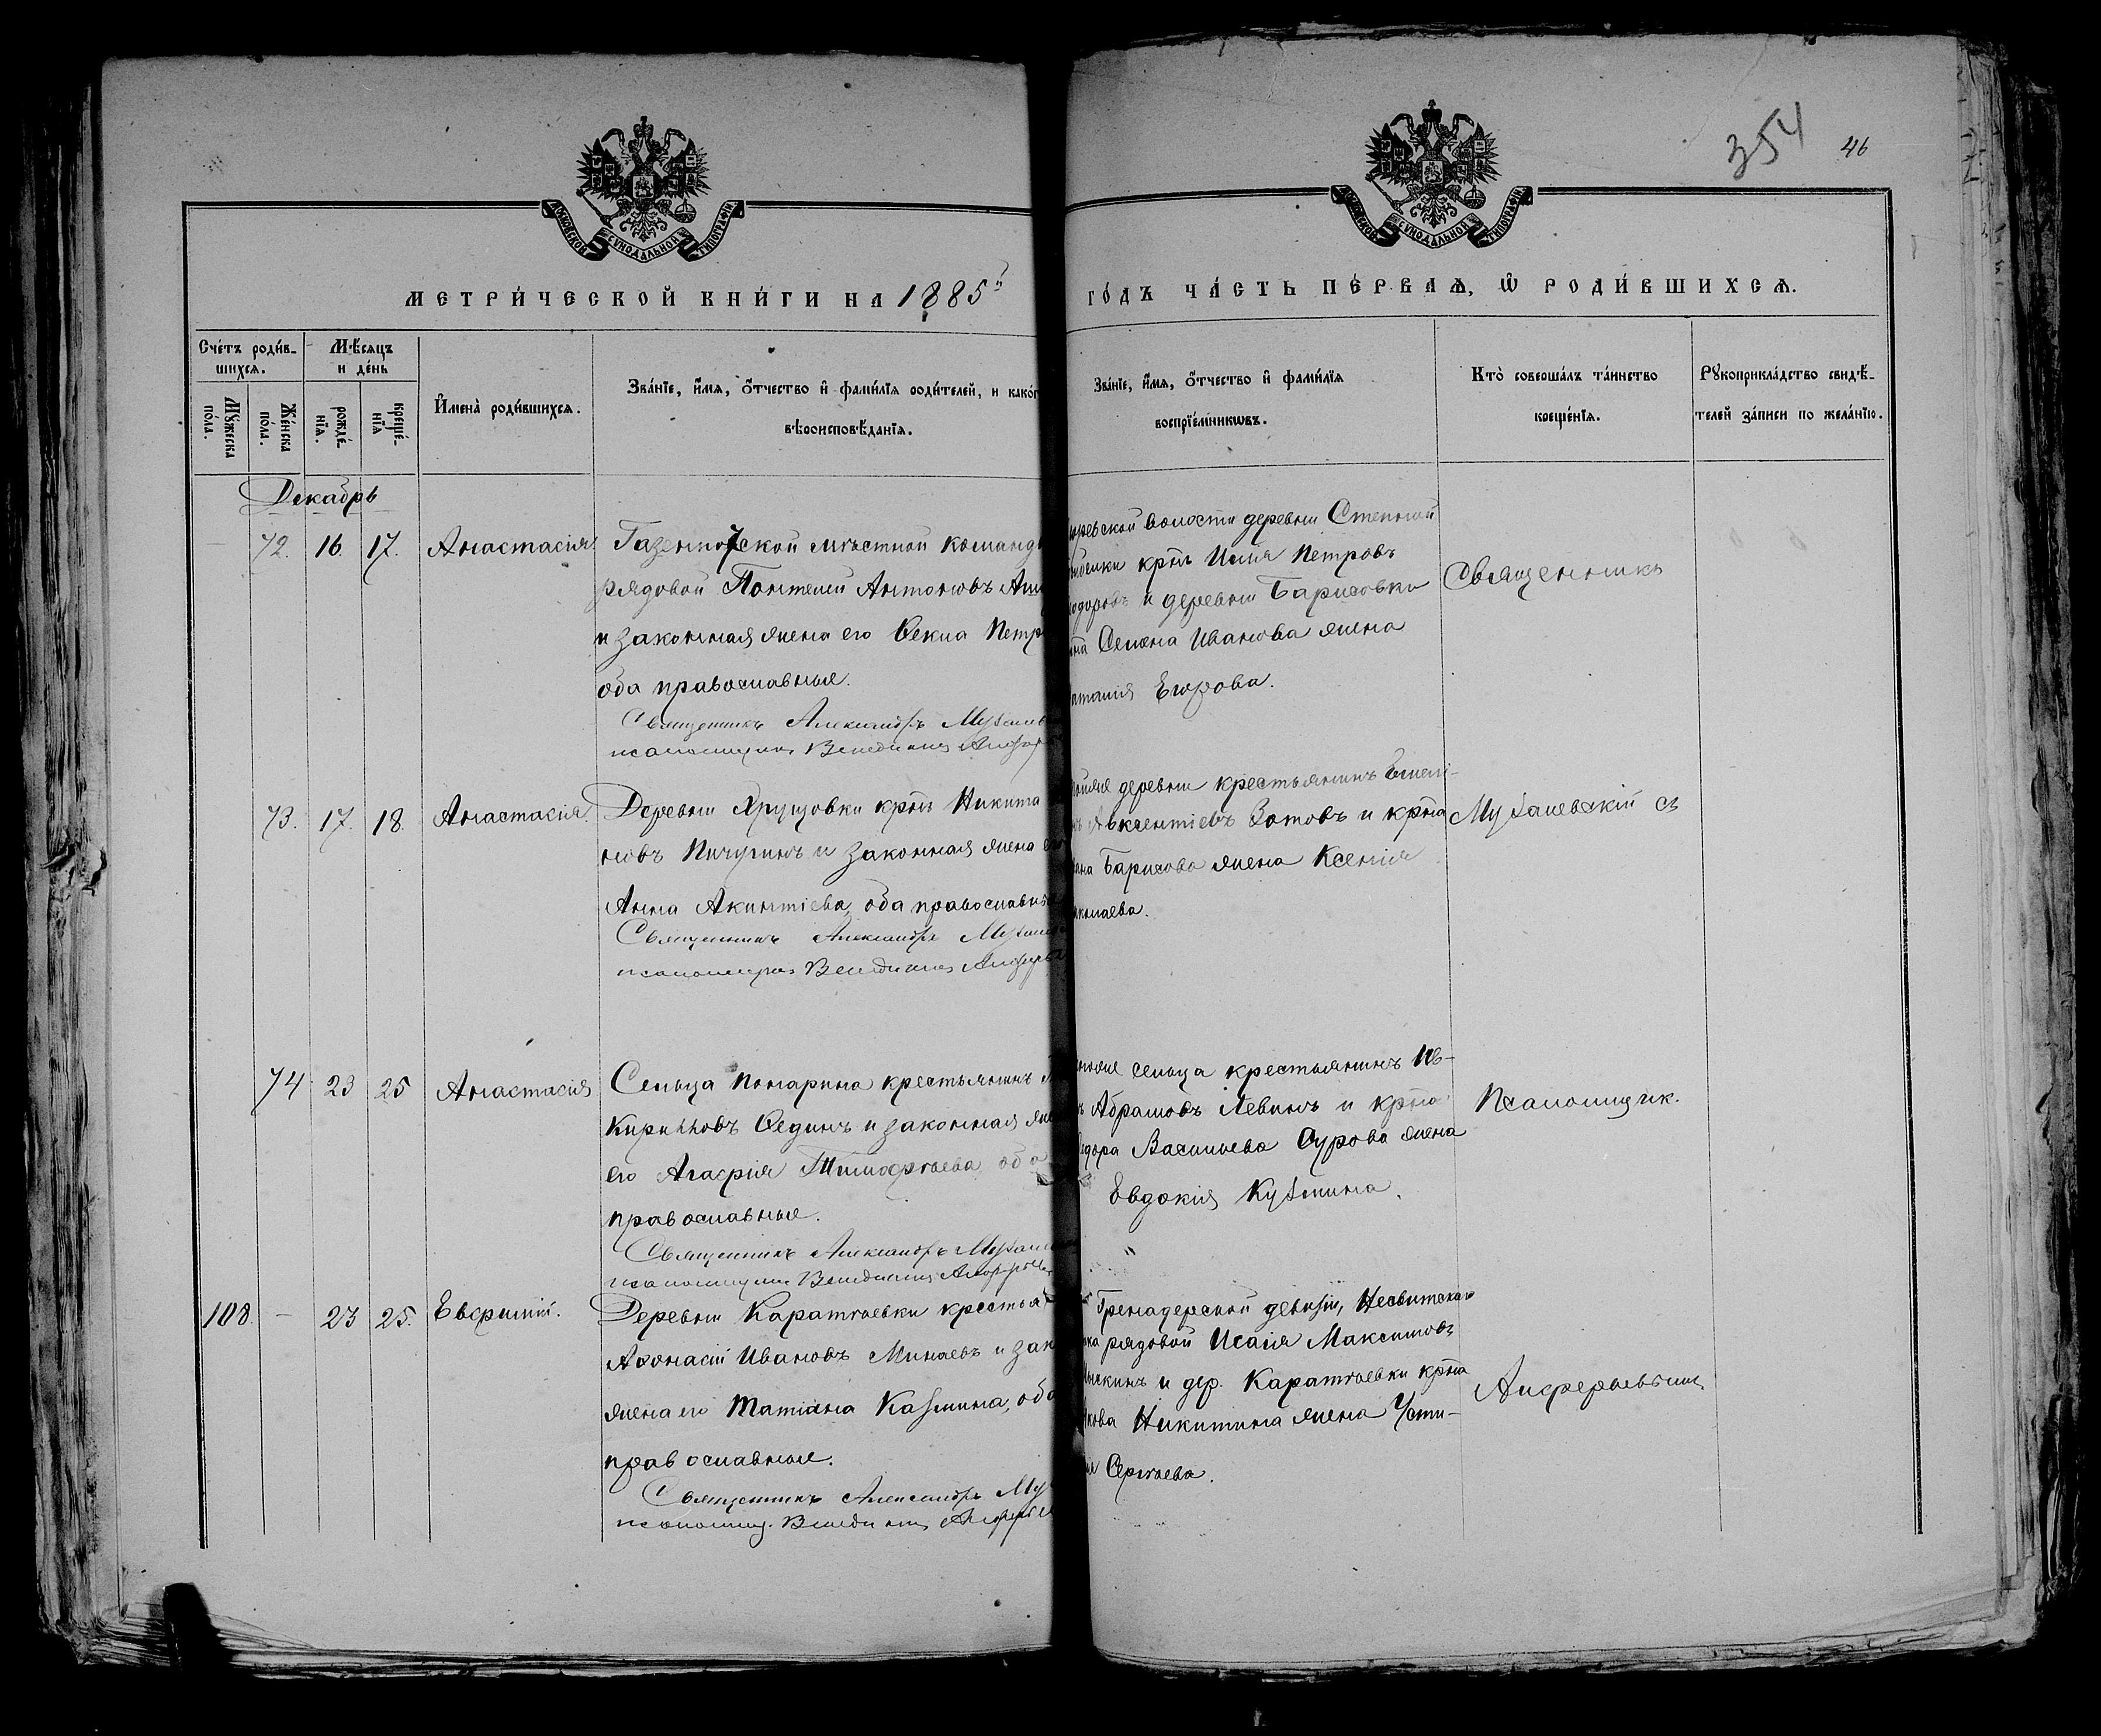 354 46
МОСКОВСКОЙ СѴНОДАЛЬНОЙ ТИПОГРАФІИ
МОСКОВСКОЙ СѴНОДАЛЬНОЙ ТИПОГРАФІИ
МЕТРИ́ЧЕСКОЙ КНИ́ГИ НА 1885й
ГО́ДЪ ЧА́СТЬ ПЕ́РВАѦ, Ѡ҆ РОДИ́ВШИХСѦ.
Сче́тъ роди́в-
шихсѧ.
Мꙋ́жеска по́ла.
Же́нска по́ла.
Мѣ́сѧцъ
и де́нь
рожде́-
нїѧ.
креще́-
нїѧ
И҆мена̀ роди́вшихсѧ.
Зва́нїе, и҆́мѧ, ѻ҆́тчество и҆ фами́лїѧ роди́телей, и како́г
вѣроисповѣ́данїѧ.
Зва́нїе, и҆́мѧ, ѻ҆́тчество и҆ фами́лїѧ
воспрїе́мникѡвъ.
Кто̀ соверша́лъ та́инство
креще́нїѧ.
Рꙋкоприкла́дство свидѣ́-
телей за́писи по жела́нїю.
Декабрь
72. 16. 17. Анастасія
мѣстной команд
рядовой Антоновъ
и законная жена его Ѳекла Петр
оба православные.
Священникъ Александръ
псаломщикъ Венедиктъ
волости деревни Степной
крнъ Илія Петровъ
и деревни Барисовки
Семена Иванова жена
Егорова.
Священникъ
73. 17. 18. Анастасія.
Деревни Хрущовки крнъ Никита
новъ Пичугинъ и законная жена его
Анна Акинтіева, оба православн
Священникъ Александръ
псаломщикъ Венедиктъ
деревни крестьянинъ Емелі-
Авксентіевъ Зотовъ и крна
Барисова жена Ксенія
колаева.
Музалевскій съ
74 23 25 Анастасія
Сельца Понарина крестьянинъ
Кириловъ Ѳединъ и законная же
его Агафія Тимофѣева оба
православные.
Священникъ Александръ
псаломщикъ Венедиктъ
сельца крестьянинъ Ив-
Абрамовъ Левинъ и крна
Васильева Сурова жена
Евдокія Кузмина.
Псаломщик.
108. – 23 25. Евфимій.
Деревни Каратѣевки крестья
Аѳонасій Ивановъ Минаевъ и зак
жена его Татіана Казмина, оба
православные.
Священникъ Александръ
псаломщ. Венедиктъ
Гренадерской девизіи, Несвитскаго
рядовой Исаія Максимовъ
и дер. Каратѣевки крна
Никитина жена Усти-
Сергѣева.